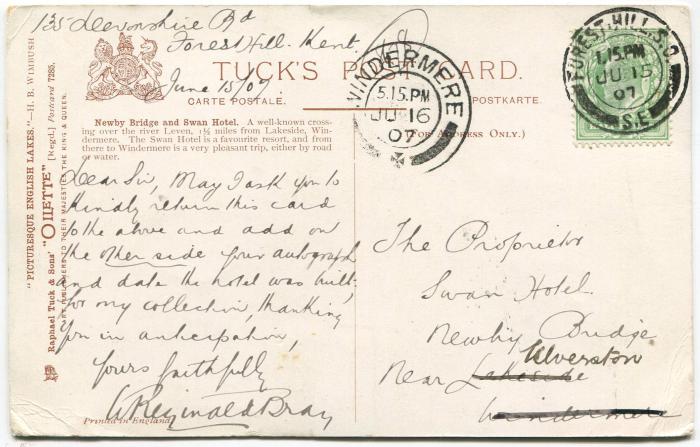 135 Devonshire Rd
Forest Hill. Kent.
June 15/07
TUCK'S POST CARD.
CARTE POSTALE.
POSTKARTE.
(FOR ADDRESS ONLY.)
WINDERMERE
5.15.PM
JU 16
07
FOREST-HILL.S.O.
1.15.PM
JU 15
07
S.E.
"PICTURESQUE ENGLISH LAKES."—H. B. WIMBUSH
Raphael Tuck & Sons' "OILETTE" [Regd.] Postcard 7285.
ART PUBLISHERS TO THEIR MAJESTIES THE KING & QUEEN.
Newby Bridge and Swan Hotel. A well-known cross-
ing over the river Leven, 1½ miles from Lakeside, Win-
dermere. The Swan Hotel is a favourite resort, and from
there to Windermere is a very pleasant trip, either by road
or water.
Dear Sir, May I ask you to
kindly return this card
to the above and add on
the other side your autograph
and date the hotel was built,
for my collection, thanking
you in anticipation,
yours faithfully
W Reginald Bray
Printed in England
The Proprietor
Swan Hotel
Newby Bridge
Ulverston
Near Lakeside
Windermere